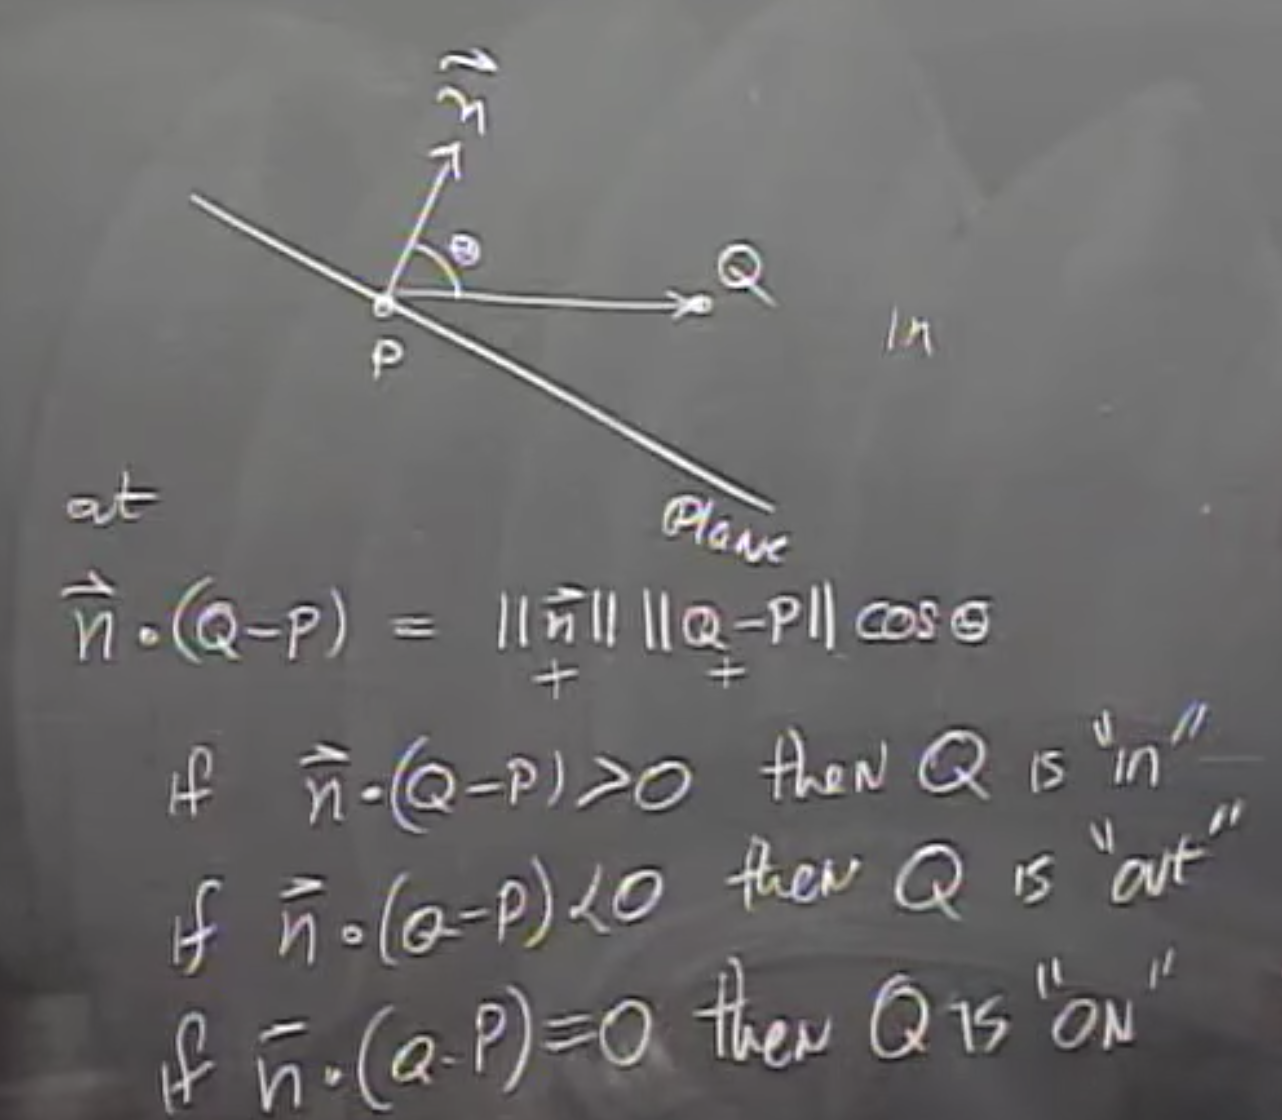 n⃗
θ
Q
P
in
Plane
at
n⃗ · (Q-P) = ||n⃗|| ||Q-P|| cos θ
+ +
if n⃗ · (Q-P) > 0 then Q is "in"
if n⃗ · (Q-P) < 0 then Q is "out"
if n⃗ · (Q-P) = 0 then Q is "ON"